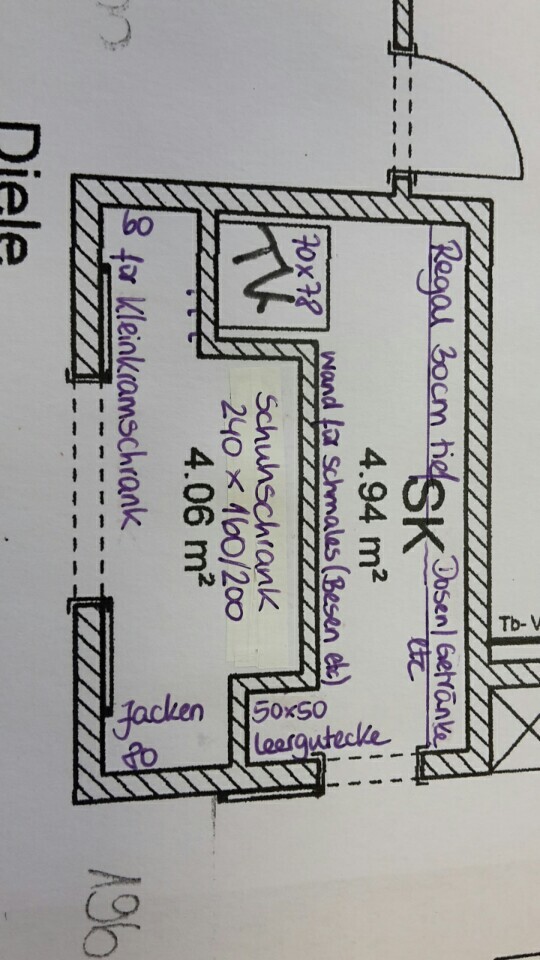 Regal 30cm tief Dosen/Getränke
etc
SK
4.94 m²
Wand für schmales (Besen etc)
70x78
TV
50x50
Leergutecke
Schuhschrank
240 x 160/200
4.06 m²
60 für Kleinkramschrank
Jacken
80
Diele
Tb-V
196